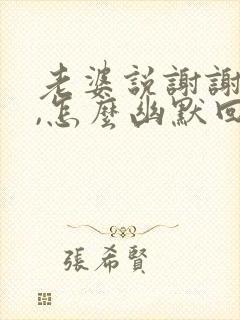 老婆説謝謝
,怎麼幽默回
張希賢